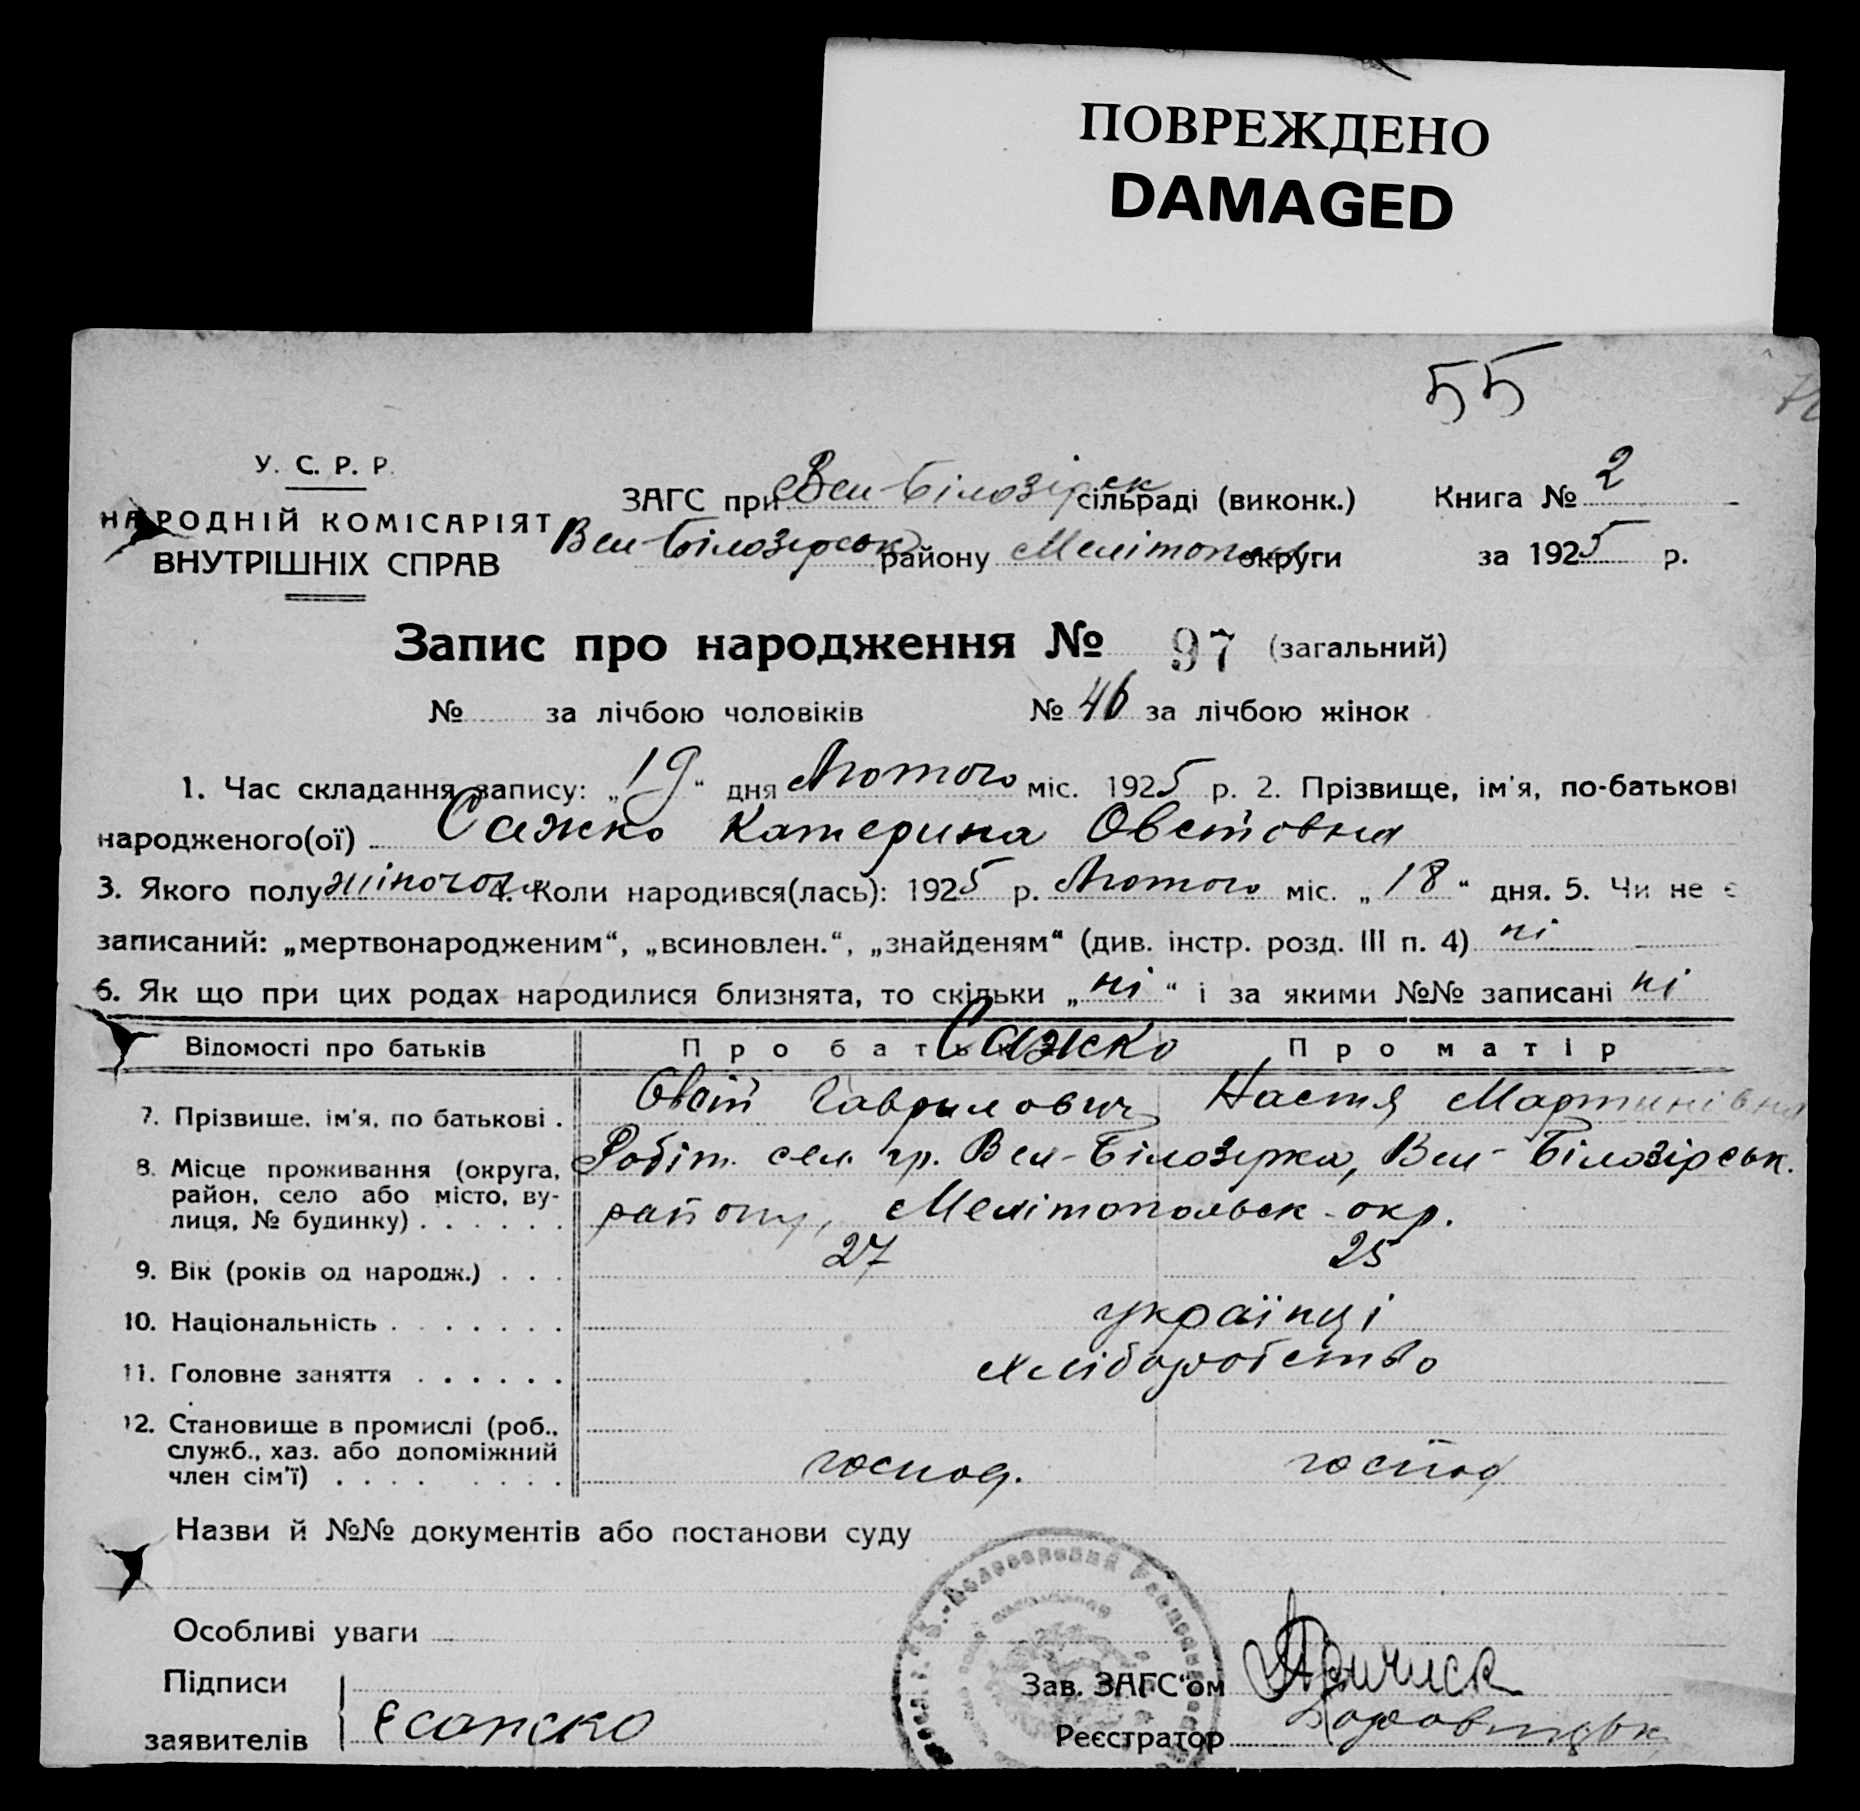 ПОВРЕЖДЕНО
DAMAGED
55
У. С. Р. Р.
НАРОДНІЙ КОМІСАРІЯТ
ВНУТРІШНІХ СПРАВ
ЗАГС при Вел-Білозірськ сільраді (виконк.) Книга № 2
Вел-Білозірськ району Мелітопол округи за 1925 р.
Запис про народження № 97 (загальний)
№ за лічбою чоловіків № 46 за лічбою жінок
1. Час складання запису: „19“ дня Лютого міс. 1925 р. 2. Прізвище, ім'я, по-батькові
народженого(ої) Сажко Катерина Овсіївна
3. Якого полу жіночого 4. Коли народився(лась): 1925 р. Лютого міс. „18“ дня. 5. Чи не є
записаний: „мертвонародженим“, „всиновлен.“, „знайденям“ (див. інстр. розд. III п. 4) ні
6. Як що при цих родах народилися близнята, то скільки „ні“ і за якими №№ записані ні
Відомості про батьків Про батька Сажко Про матір
7. Прізвище, ім'я, по батькові . Овсій Гаврилович Настя Мартинівна
8. Місце проживання (округа, район, село або місто, вулиця, № будинку) . . . . . . Робіт. сел. гр. Вел-Білозірка, Вел-Білозірськ.
району, Мелітопольськ окр.
9. Вік (років од народж.) . . . 27 25
10. Національність . . . . . . . українці
11. Головне заняття . . . . . . хліборобство
12. Становище в промислі (роб., служб., хаз. або допоміжний член сім'ї) . . . . . . . . господ. господ
Назви й №№ документів або постанови суду
Особливі уваги
Підписи
заявителів Есажко
Зав. ЗАГС'ом
Реєстратор